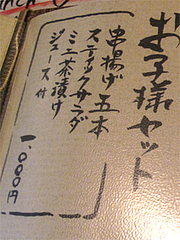 お子様セット
串揚げ五本
スティックサラダ
ミニ茶漬け
ジュース付
一、000円